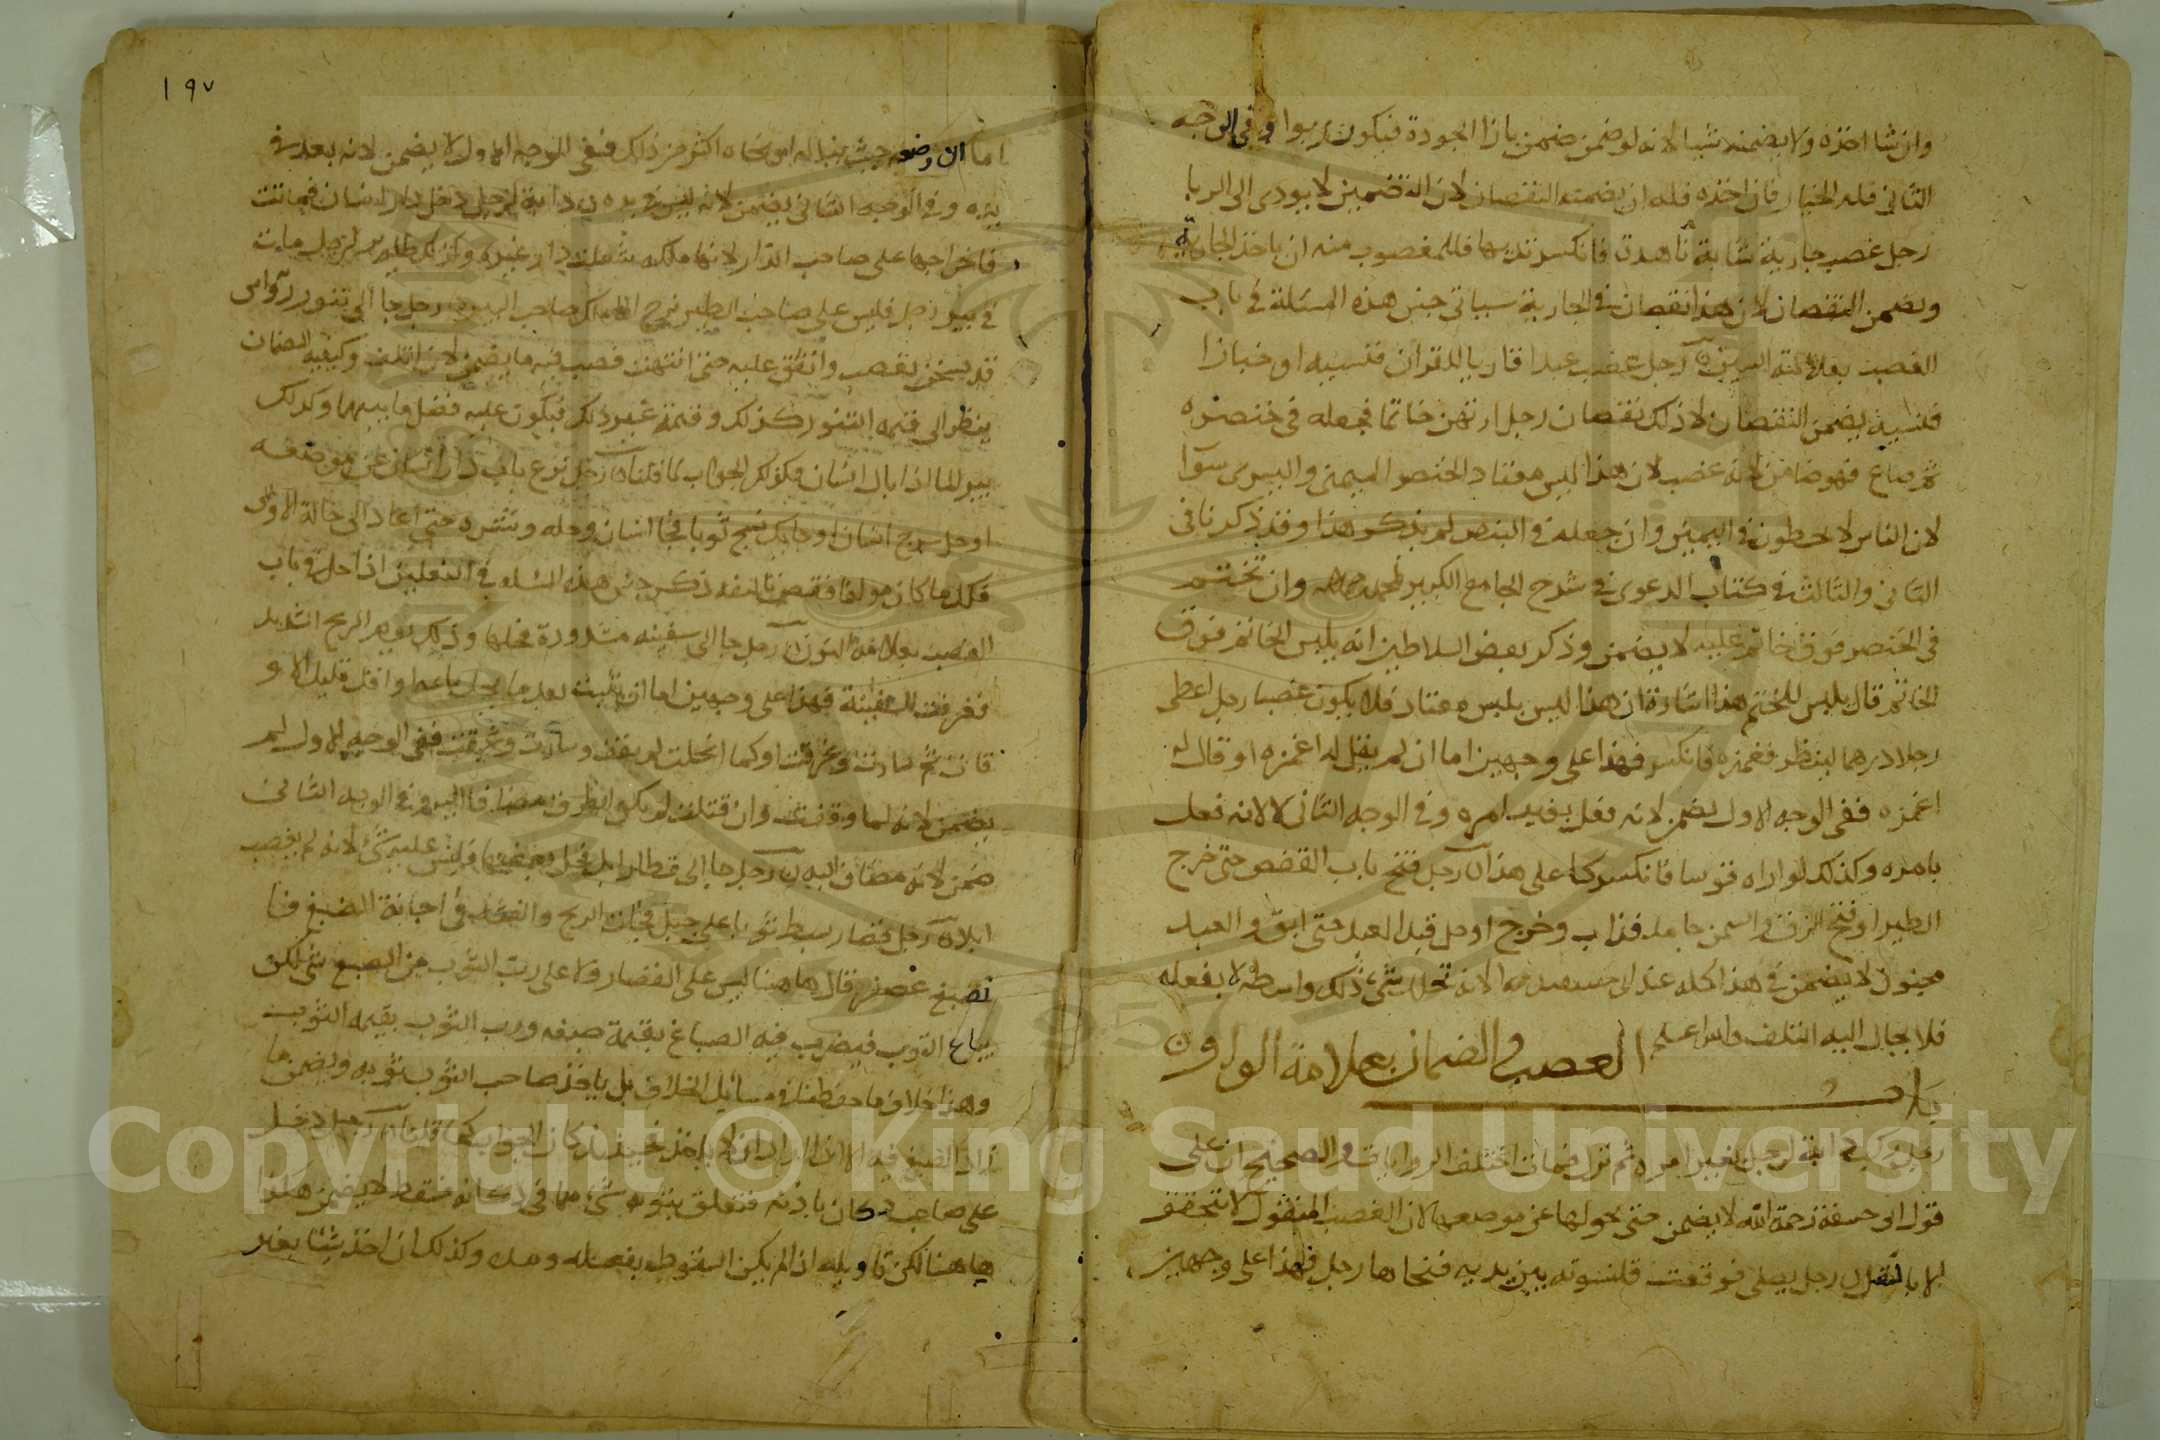 وان شا اخذه ولا يضمنه شيا لانه لو ضمن ضمن بازا الجودة فيكون ربوا وفي الوجه
الثاني فله الخيار فان اخذه فله ان يضمنه النقصان لان التضمين لا يودى الى الربا
رجل غصب جارية شابة ناهدة فانكسر ثدييها فللمغصوب منه ان ياخذ الجارية
ويضمن النقصان لان هذا نقصان في الجارية سياتي جنس هذه المسئلة في باب
الغصب بعلامة السين رجل غصب عبدا قاريا للقران فنسيه او خبازا
فنسيه يضمن النقصان لان ذلك نقصان رجل ارتهن خاتما فجعله في خنصره
فضاع فهو ضامن لانه غصب لان هذا لبس معتاد الخنصر اليمنى واليسرى سوآ
لان الناس لا في اليمين وان جعله في البنصر لم يذكر هذا وقد ذكرنا في
الثاني والثالث في كتاب الدعوى في شرح الجامع الكبير وان تختم
في الخنصر فوق خاتم عليه لا يضمن وذكر بعض السلاطين انه يلبس الخاتم فوق
الخاتم قال يلبس للختم هذا اشارة ان هذا ليس بلبس معتاد فلا يكون غصبا رجل اعطى
رجلا درهما لينظر فغمزه فانكسر فهذا على وجهين اما ان لم يقل له اغمزه او قال له
اغمزه ففي الوجه الاول يضمن لانه فعل بغير امره وفي الوجه الثاني لا لانه فعل
بامره وكذلك لو اراه قوسا فانكسر كذا على هذا رجل فتح باب القفص حتى خرج
الطير او فتح الزق والسمن جامد فذاب وخرج او حل قيد العبد حتى ابق والعبد
مجنون لا يضمن في هذا كله عند لانه تخلل شيء ذلك واسطة لا بفعله
فلا يحال اليه التلف والله اعلم
باب الغصب والضمان بعلامة الواو
رجل ركب دابة لرجل بغير امره ثم نزل ضمان اختلف الروايات والصحيح ان على
قول ابي حنيفة رحمة الله لا يضمن حتى يحولها عن موضعها لان الغصب المنقول لا يتحقق
الا بالنقل رجل يصلي فوقعت قلنسوته بين يديه فنحاها رجل فهذا على وجهين
١٩٧
اما ان وضعه حيث يناله او نحاه اكثر من ذلك ففي الوجه الاول لا يضمن لانه بعد في
يده وفي الوجه الثاني يضمن لانه ليس في يده دابة لرجل دخل دار انسان فماتت
فاخراجها على صاحب الدار لانها ملكه شغلت دار غيره وكذلك طير لرجل مات
في بير رجل فليس على صاحب الطير نزح صاحب البير رجل جا الى تنور روآس
قد سخن بقصب وانفق عليه حتى انتهت فصب فيه ما يضمن لانه اتلف وكيفية الضمان
ينظر الى قيمة التنور كذلك وقيمة غير ذلك فيكون عليه فضل ما بينهما وكذلك
بير الما اذا بال انسان فكذلك الجواب لما قلنا رجل نزع باب دار انسان عن موضعه
او حل سرج انسان او حايك نسج ثوبا فجا انسان وحله ونشره حتى اعاد الى حالة الاولى
فكل ما كان مولفا فنقض ذكر جنس هذه المسئلة في النعلين اذا حل في باب
الغصب بعلامة النون رجل جا الى سفينة مشدودة فحلها وذلك يوم الريح الشديد
فغرقت السفينة فهذا على وجهين اما ان ثبتت بعد ما حل ساعة او اقل قليلا
كان ثم سارت وغرقت او كما انحلت لم يقف وسارت وغرقت ففي الوجه الاول لم
يضمن لانه لما وقفت وان قلت لم يكن مضافا اليه وفي الوجه الثاني
ضمن لانه مضاف اليه رجل جا الى قطار ابل فحل بعضها فليس عليه شيء لانه لم يغصب
ابلا رجل قصار بسط ثوبا على حبل فجات الريح والقته في اجانة الصبغ فا
نصبغ عصفر قال هاهنا ليس على القصار ولا على رب الثوب من الصبغ شي لكن
يباع الثوب فيضرب فيه الصباغ بقيمة صبغه ورب الثوب بقيمة الثوب
وهذا خلاف ما حفظناه في مسائل الخلاف بل ياخذ صاحب الثوب ثوبه ويضمن ما
زاد الصبغ فيه الا ان اراد ان لا ياخذ فحينئذ كان الجواب كما قلنا رجل دخل
على صاحب دكان باذنه فتعلق بثوبه شيء مما في دكانه فسقط لا يضمن هكذا
هاهنا لكن تاويله اذا لم يكن السقوط بفعله ومده وكذلك ان اخذ شيئا بغير